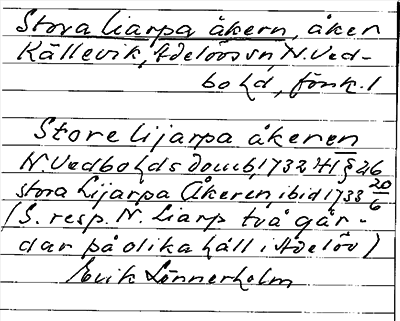 Stora liarpa åkern, åker
Källevik, Adelövs sn, N. Ved-
bo hd, förk. 1
Store lijarpa åkeren
N. Vedbo hds domb, 1732 HT § 26
stora Lijarpa Åkeren, ibid 1733 20/6
(S. resp. N. Liarp två går-
dar på olika håll i Adelöv)
Erik Lönnerholm